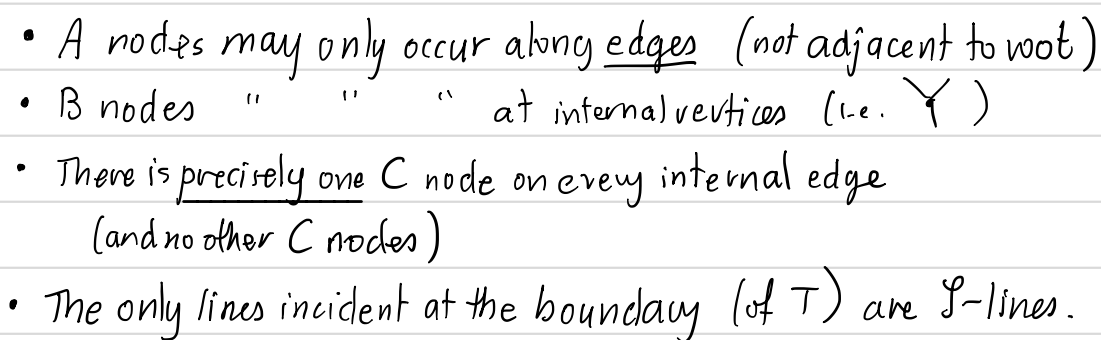 • A nodes may only occur along edges (not adjacent to root)
• B nodes " " " at internal vertices (i.e. Y )
• There is precisely one C node on every internal edge
(and no other C nodes)
• The only lines incident at the boundary (of T) are 𝒮-lines.